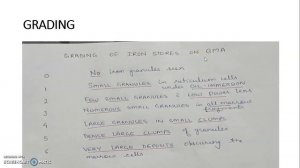 GRADING
GRADING OF IRON STORES ON BMA
0 No iron granules seen
1 SMALL GRANULES in reticulum cells
under OIL IMMERSION
2 FEW SMALL GRANULES @ LOW POWER lens
3 NUMEROUS SMALL GRANULES in all marrow
fragments
4 LARGE GRANULES in SMALL CLUMPS
5 DENSE LARGE CLUMPS of granules
6 VERY LARGE DEPOSITS obscuring the
marrow cells